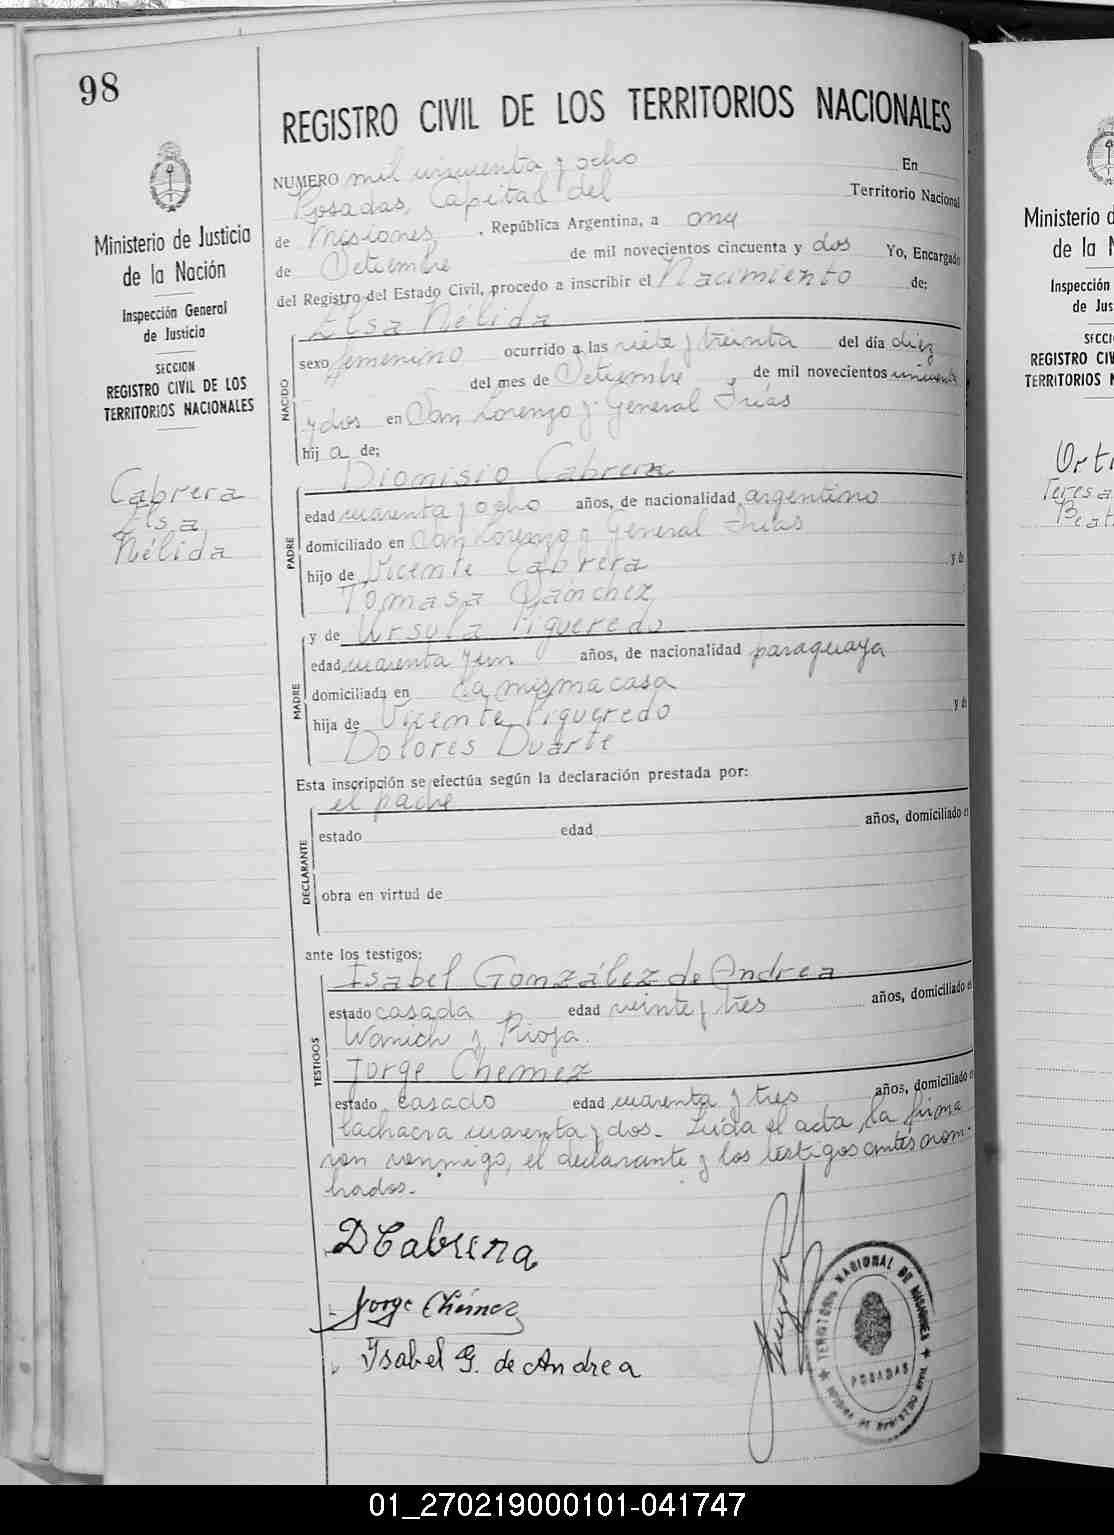 98
REGISTRO CIVIL DE LOS TERRITORIOS NACIONALES
NUMERO mil cincuenta y ocho En
Posadas, Capital del Territorio Nacional
de Misiones, República Argentina, a once
de Setiembre de mil novecientos cincuenta y dos Yo, Encargado
del Registro del Estado Civil, procedo a inscribir el Nacimiento de;
Elsa Nélida
NACIDO
sexo femenino ocurrido a las siete y treinta del día diez
del mes de Setiembre de mil novecientos cincuenta
y dos en San Lorenzo y General Frías
hij a de;
Dionisio Cabrera
PADRE
edad cuarenta y ocho años, de nacionalidad argentino
domiciliado en San Lorenzo y General Frías
hijo de Vicente Cabrera y de
Tomasa Sánchez
y de Ursula Figueredo
MADRE
edad cuarenta y un años, de nacionalidad paraguaya
domiciliada en la misma casa
hija de Vicente Figueredo y de
Dolores Duarte
Esta inscripción se efectúa según la declaración prestada por:
el padre
DECLARANTE
estado edad años, domiciliado e
obra en virtud de
ante los testigos:
Isabel González de Andrea
TESTIGOS
estado casada edad veinte y tres años, domiciliado e
Wanich y Rioja.
Jorge Chemez
estado casado edad cuarenta y tres años, domiciliado e
la chacra cuarenta y dos. Leída el acta, la firma
con conmigo, el declarante y los testigos antes nom-
brados.
D Cabrera
Jorge Chémez
Ysabel G. de Andrea
TERRITORIO NACIONAL DE MISIONES
POSADAS
Ministerio de Justicia
de la Nación
Inspección General
de Justicia
SECCION
REGISTRO CIVIL DE LOS
TERRITORIOS NACIONALES
Cabrera
Elsa
Nélida
Ministerio d
de la N
Inspección
de Jus
SECCI
REGISTRO CIV
TERRITORIOS N
Orti
Teresa
Beat
01_270219000101-041747